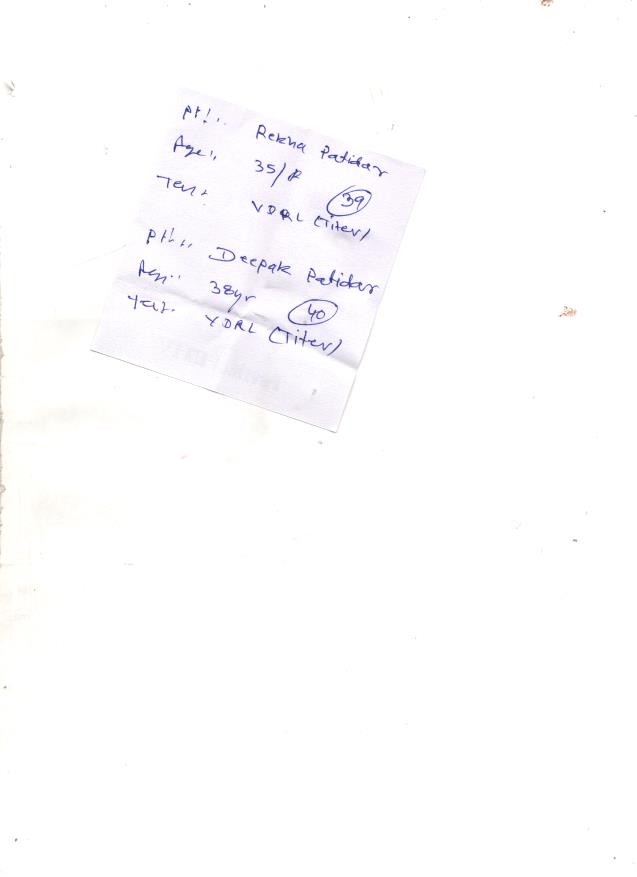 Pt:.. Rekha Patidar
Age:. 35/F
39
Test: VDRL (Titer)
Pt:.. Deepak Patidar
Age:. 38yr
40
Test. VDRL (Titer)